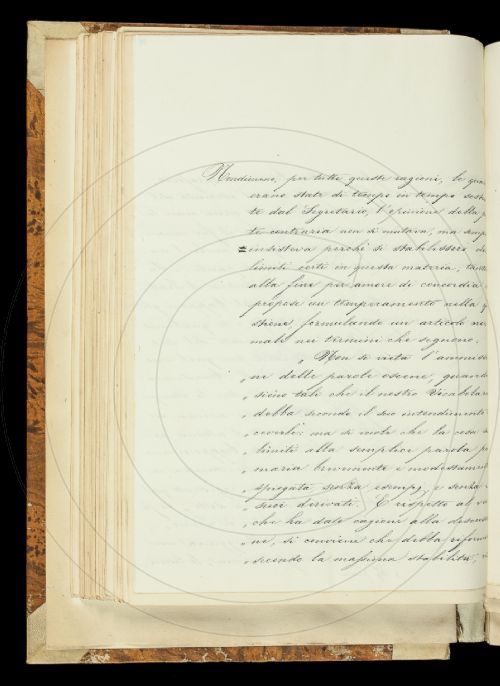 Nondimeno, per tutte queste ragioni, le qua
erano state di tempo in tempo
te dal Segretario, l'opinione della p
te contraria non si mutava; ma semp
insisteva perchè si stabilissero de
limiti certi in questa materia,
alla fine per amore di concordia
propose un temperamento nella q
stione, formulando un articolo nor
male nei termini che seguono:
„ Non si vieta l'ammissi
„ ne delle parole oscene, quando
„ sieno tali che il nostro Vocabolar
„ debba secondo il suo intendimento
„ ceverle: ma si vuole che la cosa s
„ limiti alla semplice parola pr
„ maria brevemente e modestament
„ spiegata senza esempj, e senza i
„ suoi derivati. E rispetto al vo
„ che ha dato cagione alla discussio
„ ne, si conviene che debba riform
„ secondo la massima stabilita;